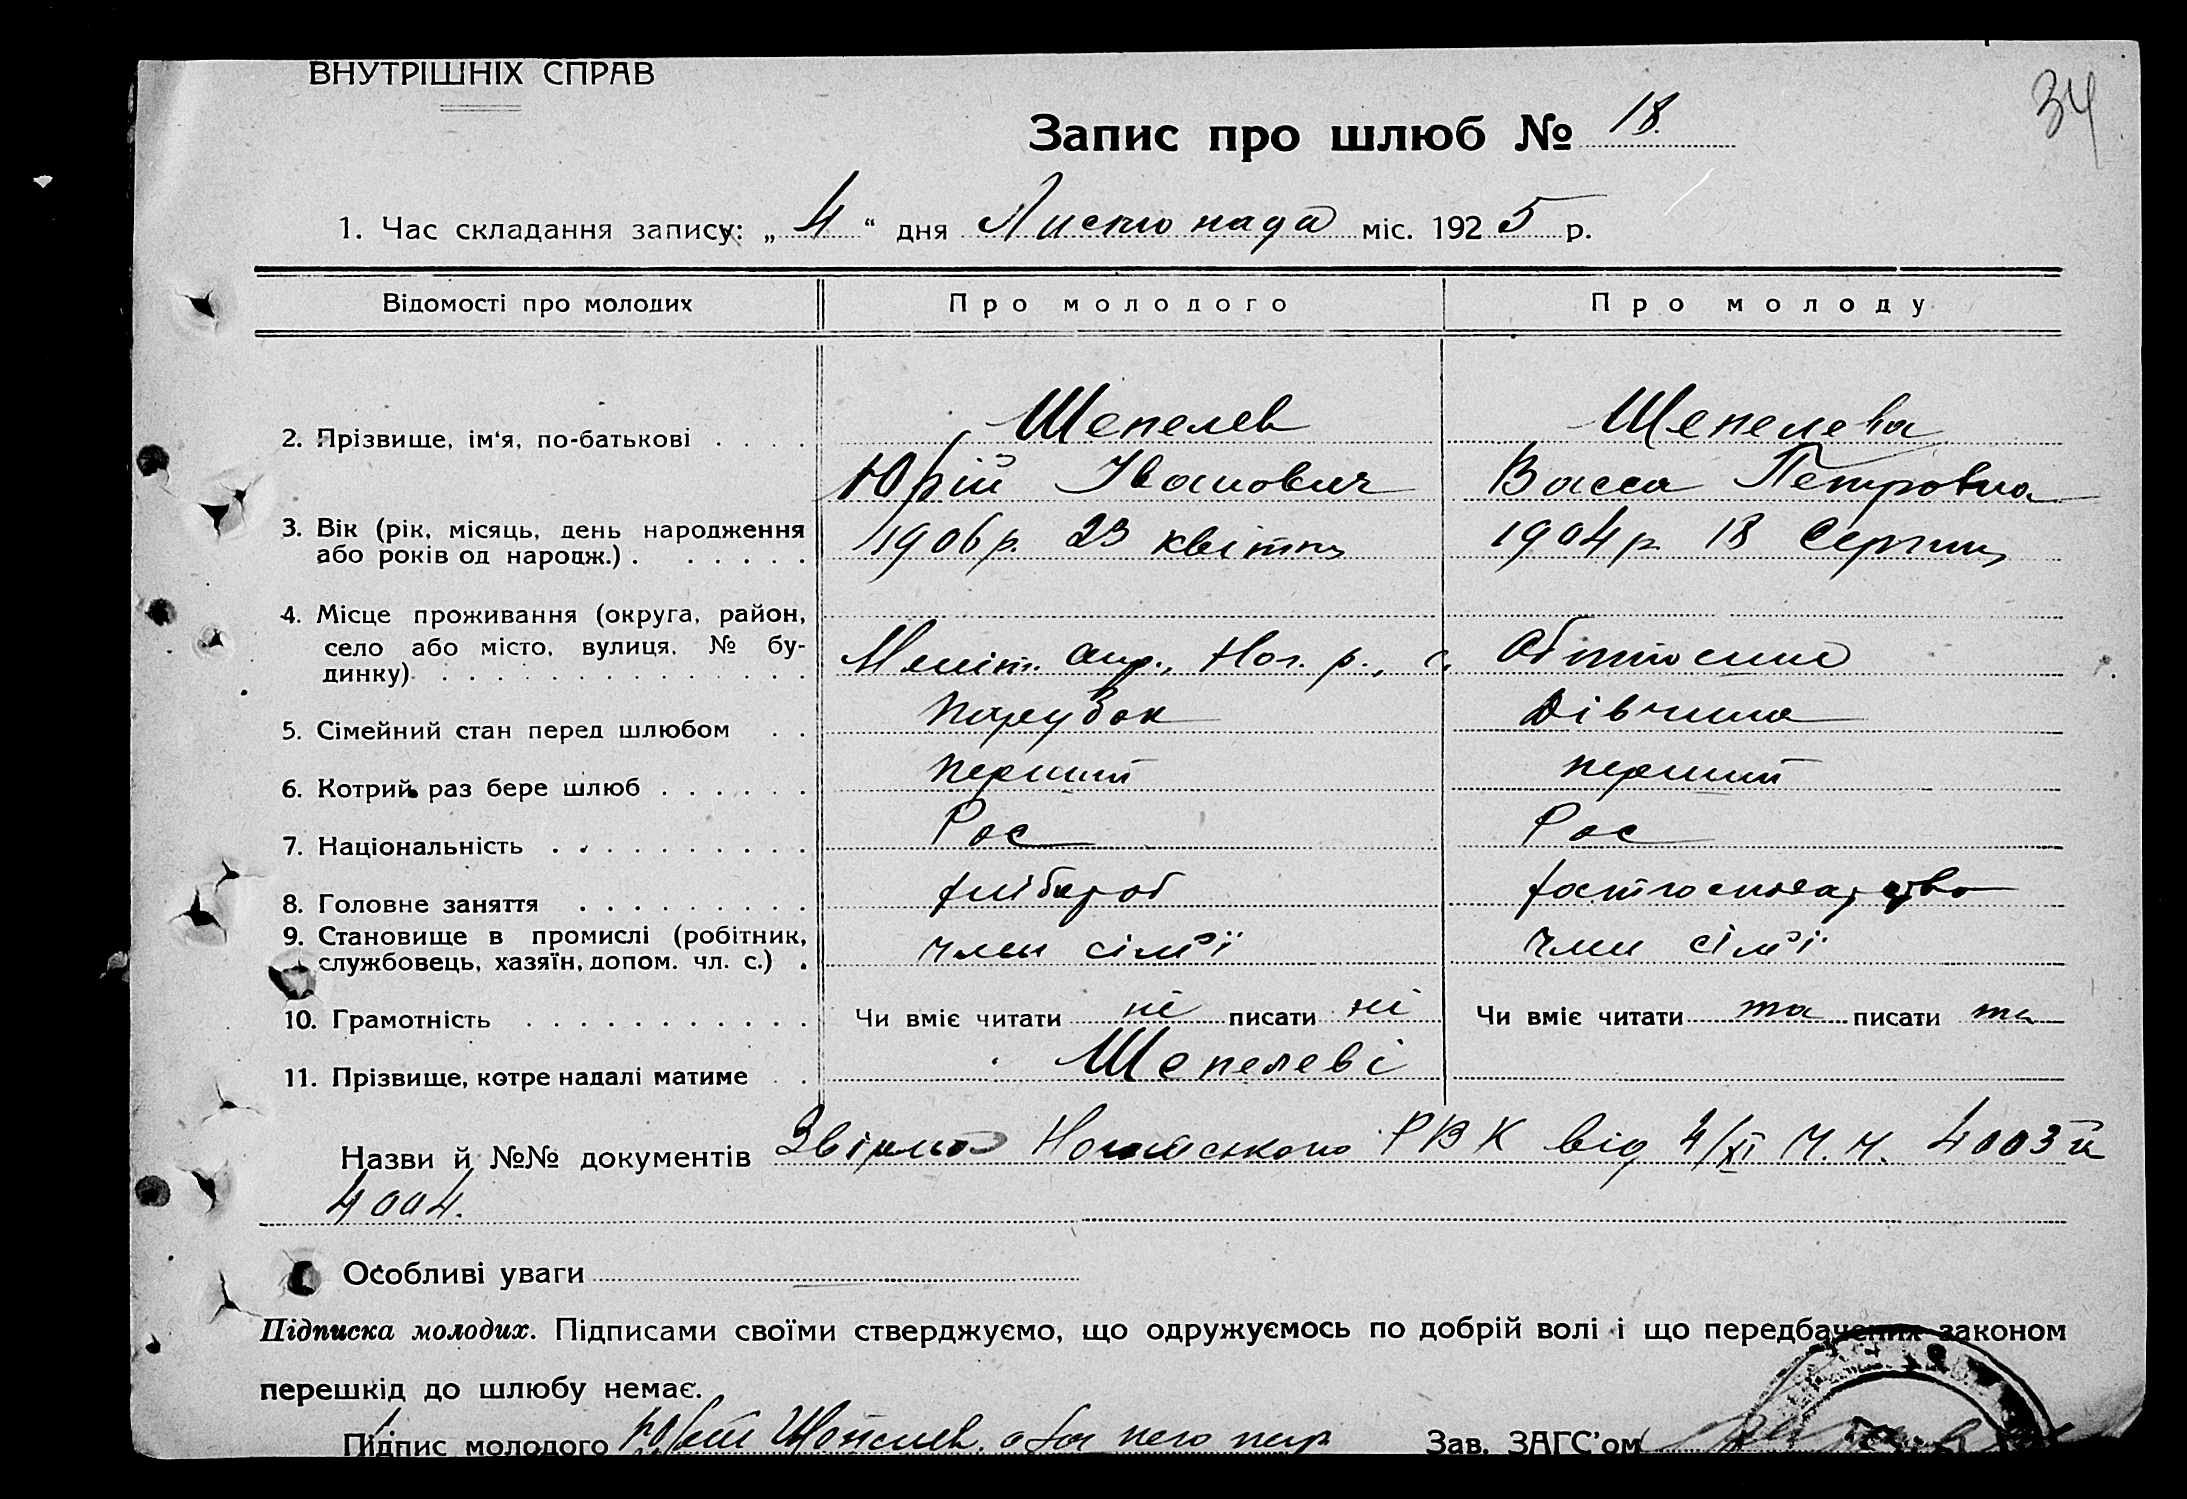 ВНУТРІШНІХ СПРАВ
34
Запис про шлюб № 18.
1. Час складання запису: „ 4 “ дня Листопада міс. 1925 р.
Відомості про молодих Про молодого Про молоду
2. Прізвище, ім'я, по-батькові . . . . Шепелев Шепелева
Юрій Іванович Васса Петровна
3. Вік (рік, місяць, день народження 1906 р. 23 квітня 1904 р. 18 Серпня
або років од народж.) . . . . . .
4. Місце проживання (округа, район,
село або місто, вулиця, № бу- Меліт. окр., Ног. р., с.
динку) . . . . . . . . . . . . . .
5. Сімейний стан перед шлюбом . . Парубок Дівчина
6. Котрий раз бере шлюб . . . . . . перший перший
7. Національність . . . . . . . . . . Рос Рос
8. Головне заняття . . . . . . . . . хлібороб
9. Становище в промислі (робітник, член сім'ї член сім'ї
службовець, хазяїн, допом. чл. с.) .
10. Грамотність . . . . . . . . . . . Чи вміє читати ні писати ні Чи вміє читати та писати та
11. Прізвище, котре надалі матиме . . Шепелеві
Назви й №№ документів Ногайського РВК від 4/XI Ч.Ч. 4003 й
4004.
Особливі уваги
Підписка молодих. Підписами своїми стверджуємо, що одружуємось по добрій волі і що передбачених законом
перешкід до шлюбу немає.
Підпис молодого Юрій Шепелев, а за него Зав. ЗАГС'ом